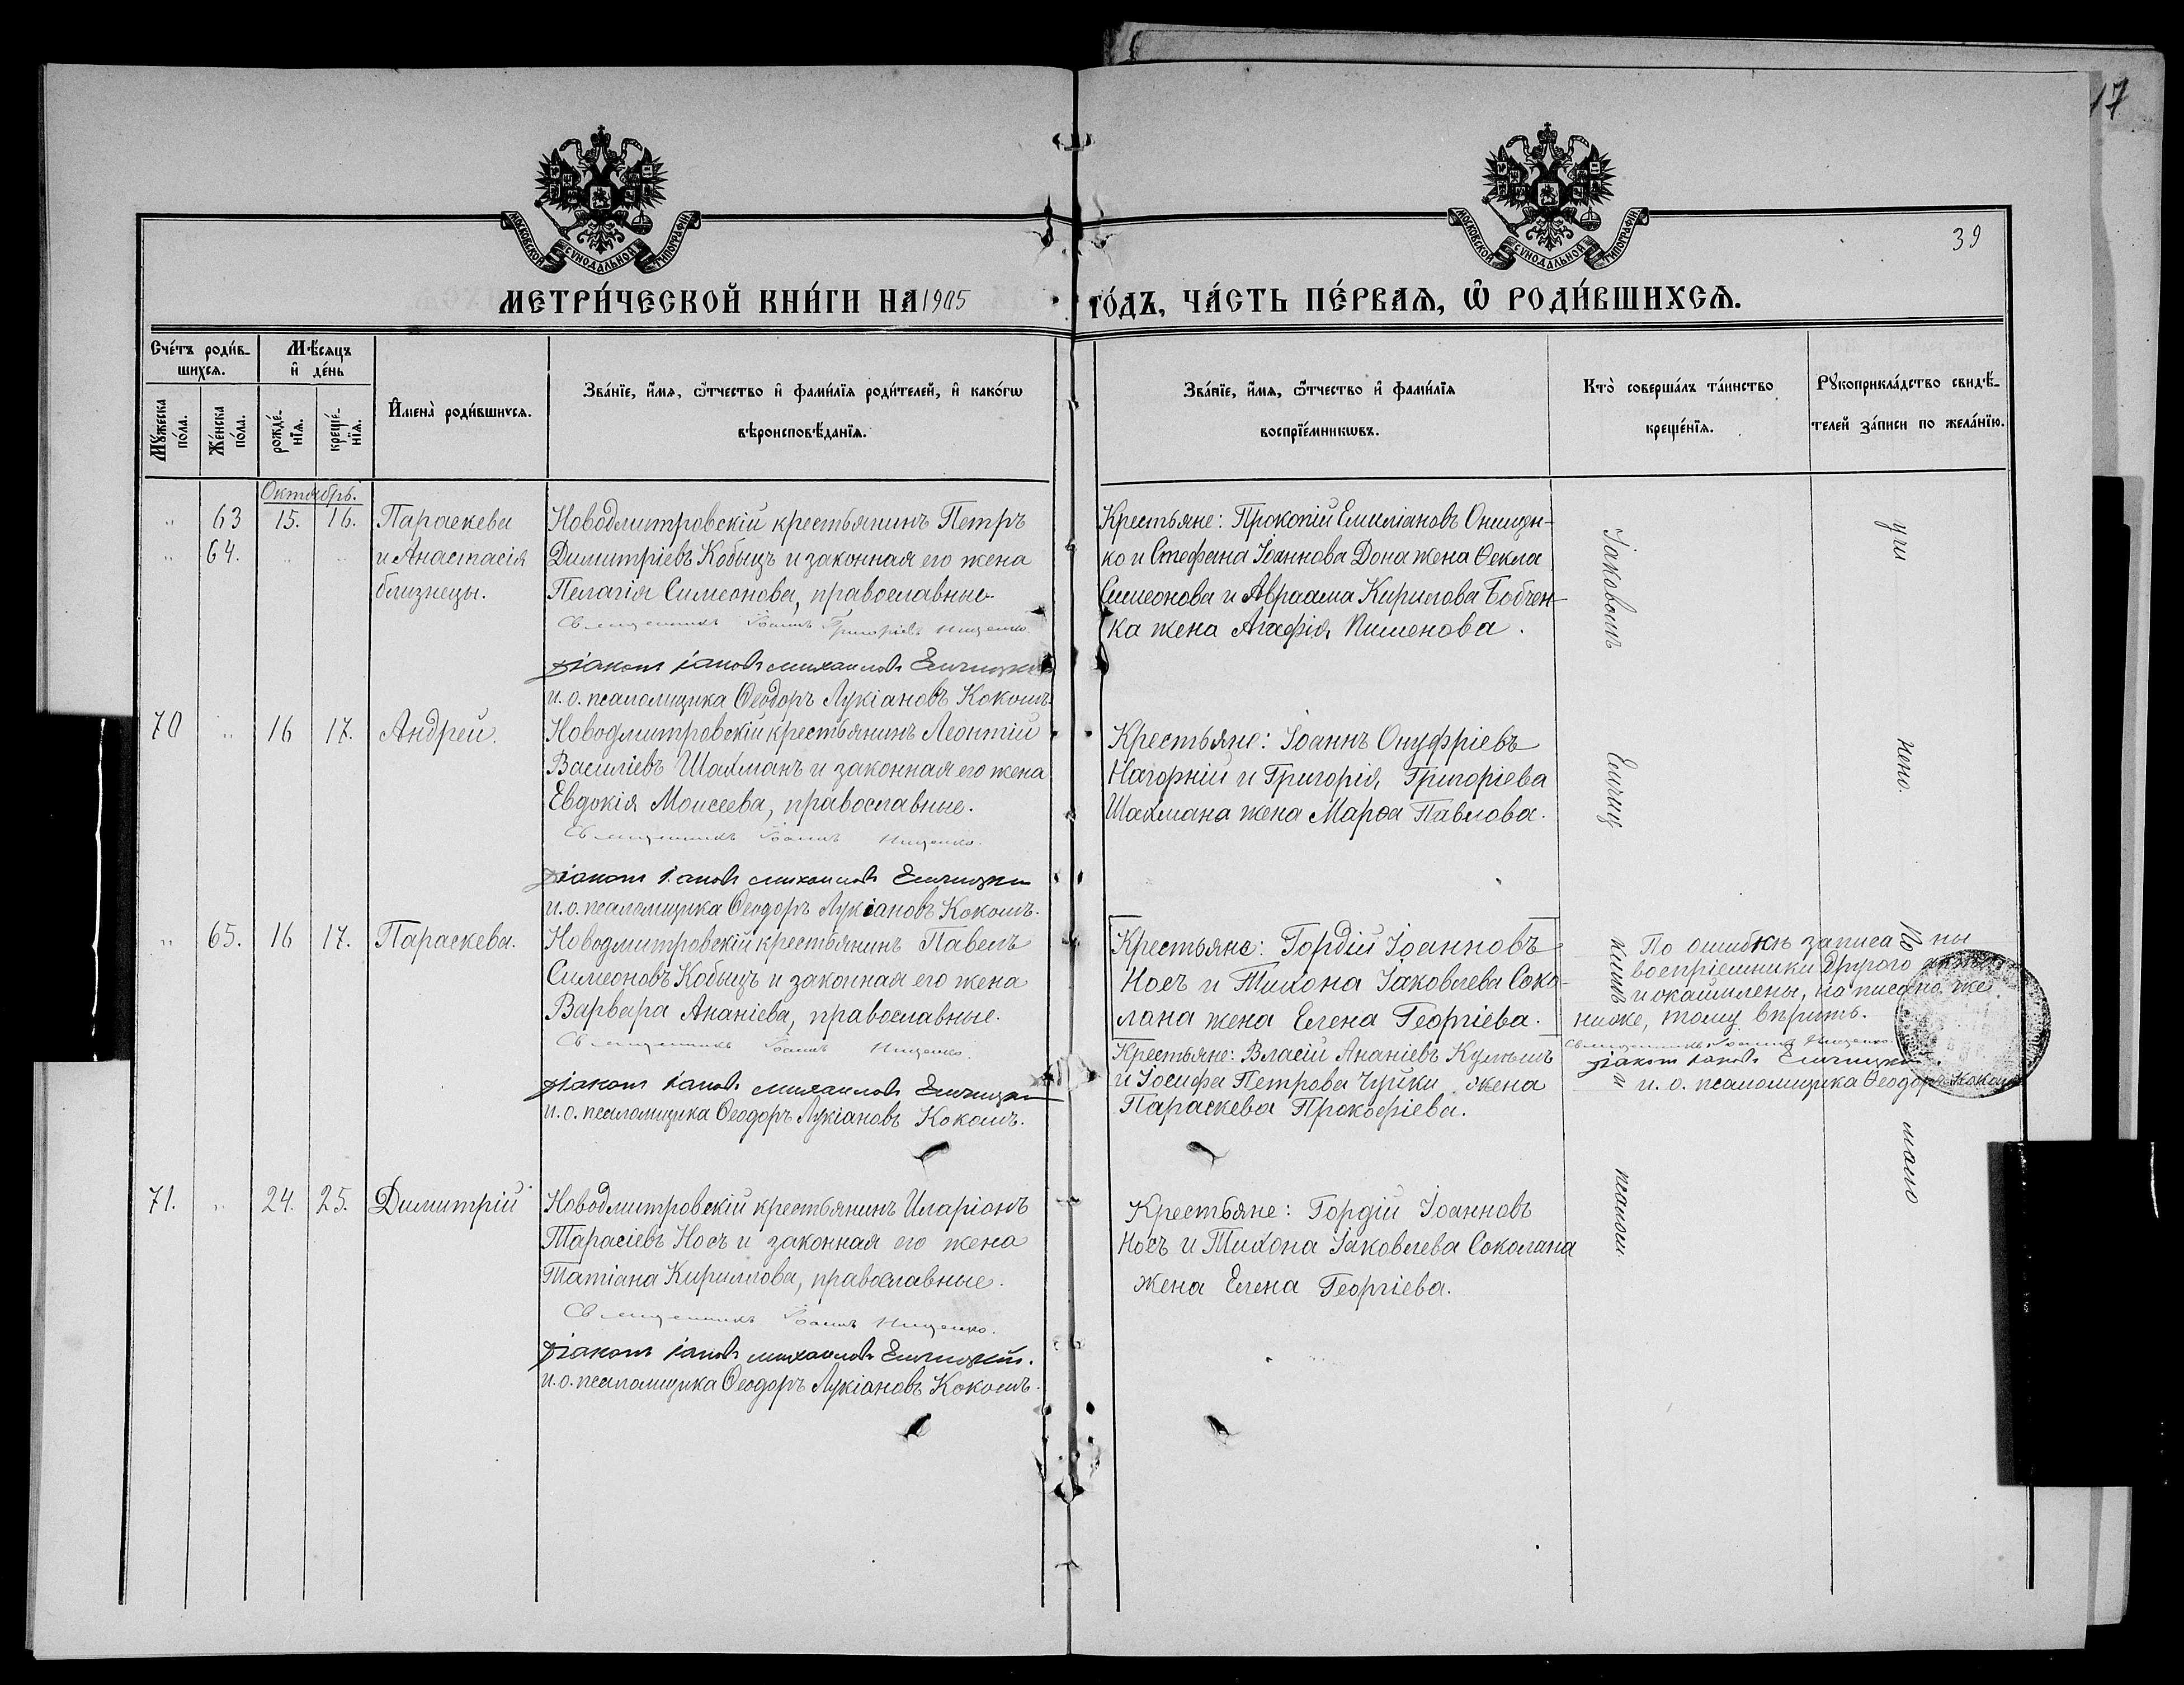 17
39
МОСКОВСКОЙ СУНОДАЛЬНОЙ ТИПОГРАФІИ
МОСКОВСКОЙ СУНОДАЛЬНОЙ ТИПОГРАФІИ
МЕТРИ́ЧЕСКОЙ КНИ́ГИ НА 1905 ГО́ДЪ, ЧА́СТЬ ПЕ́РВАЯ, Ѡ РОДИ́ВШИХСЯ.
Сче́тъ роди́в-
шихся.
Мѣ́сяцъ
и҆ де́нь
Мꙋ́жеска
по́ла.
Же́нска
по́ла.
рожде́-
нїя.
креще́-
нїя.
И҆мена̀ роди́вшихся.
Зва́нїе, и҆́мя, ѻ҆́тчество и҆ фами́лїя роди́телей, и҆ како́гѡ
вѣроисповѣ́данїя.
Зва́нїе, и҆́мя, ѻ҆́тчество и҆ фами́лїя
воспрїе́мникѡвъ.
Кто̀ соверша́лъ та́инство
креще́нїя.
Рꙋкоприкла́дство свидѣ́-
телей за́писи по жела́нїю.
Октябрь.
„ 63 15. 16. Параскева
„ 64. „ „ и Анастасія
близнецы.
Новодмитровскій крестьянинъ Петръ
Димитріевъ Кобыцъ и законная его жена
Пелагія Симеонова, православные
Священникъ Іоаннъ Григоріевъ Нищенко.
Діаконъ Іаковъ Михаиловъ Елчицкій
и. о. псаломщика Ѳеодоръ Лукіановъ Кокошъ.
Крестьяне: Прокопій Емиліановъ Онищен-
ко и Стефана Іоаннова Дона жена Ѳекла
Симеонова и Авраама Кирилова Бобчен-
ка жена Агафія Пименова.
70 „ 16 17. Андрей.
Новодмитровскій крестьянинъ Леонтій
Василіевъ Шахманъ и законная его жена
Евдокія Моисеева, православные.
Священникъ Іоаннъ Нищенко.
Діаконъ Іаковъ Михаиловъ Елчицкій
и. о. псаломщика Ѳеодоръ Лукіановъ Кокошъ.
Крестьяне: Іоаннъ Онуфріевъ
Нагорній и Григорія Григоріева
Шахмана жена Марѳа Павлова.
„ 65. 16 17. Параскева.
Новодмитровскій крестьянинъ Павелъ
Симеоновъ Кобыцъ и законная его жена
Варвара Ананіева, православные.
Священникъ Іоаннъ Нищенко.
Діаконъ Іаковъ Михаиловъ Елчицкій
и. о. псаломщика Ѳеодоръ Лукіановъ Кокошъ.
Крестьяне: Гордій Іоанновъ
Носъ и Тихона Іаковлева Соко-
лана жена Елена Георгіева.
Крестьяне: Власій Ананіевъ
и Іосифа Петрова Чуйки жена
Параскева Прокофіева.
По ошибкѣ записаны
воспріемники другого
и окаймлены, написано же
ниже, тому вѣрить.
Священникъ Іоаннъ Нищенко.
Діаконъ Іаковъ Елчицкій.
и. о. псаломщика Ѳеодоръ Кокошъ
71. „ 24. 25. Димитрій
Новодмитровскій крестьянинъ Иларіонъ
Тарасіевъ Носъ и законная его жена
Татіана Кириллова, православные.
Священникъ Іоаннъ Нищенко.
Діаконъ Іаковъ Михаиловъ Елчицкій.
и. о. псаломщика Ѳеодоръ Лукіановъ Кокошъ.
Крестьяне: Гордій Іоанновъ
Носъ и Тихона Іаковлева Соколана
жена Елена Георгіева.
Іаковомъ Елчиц кимъ и псалом.
учи нено. По мало